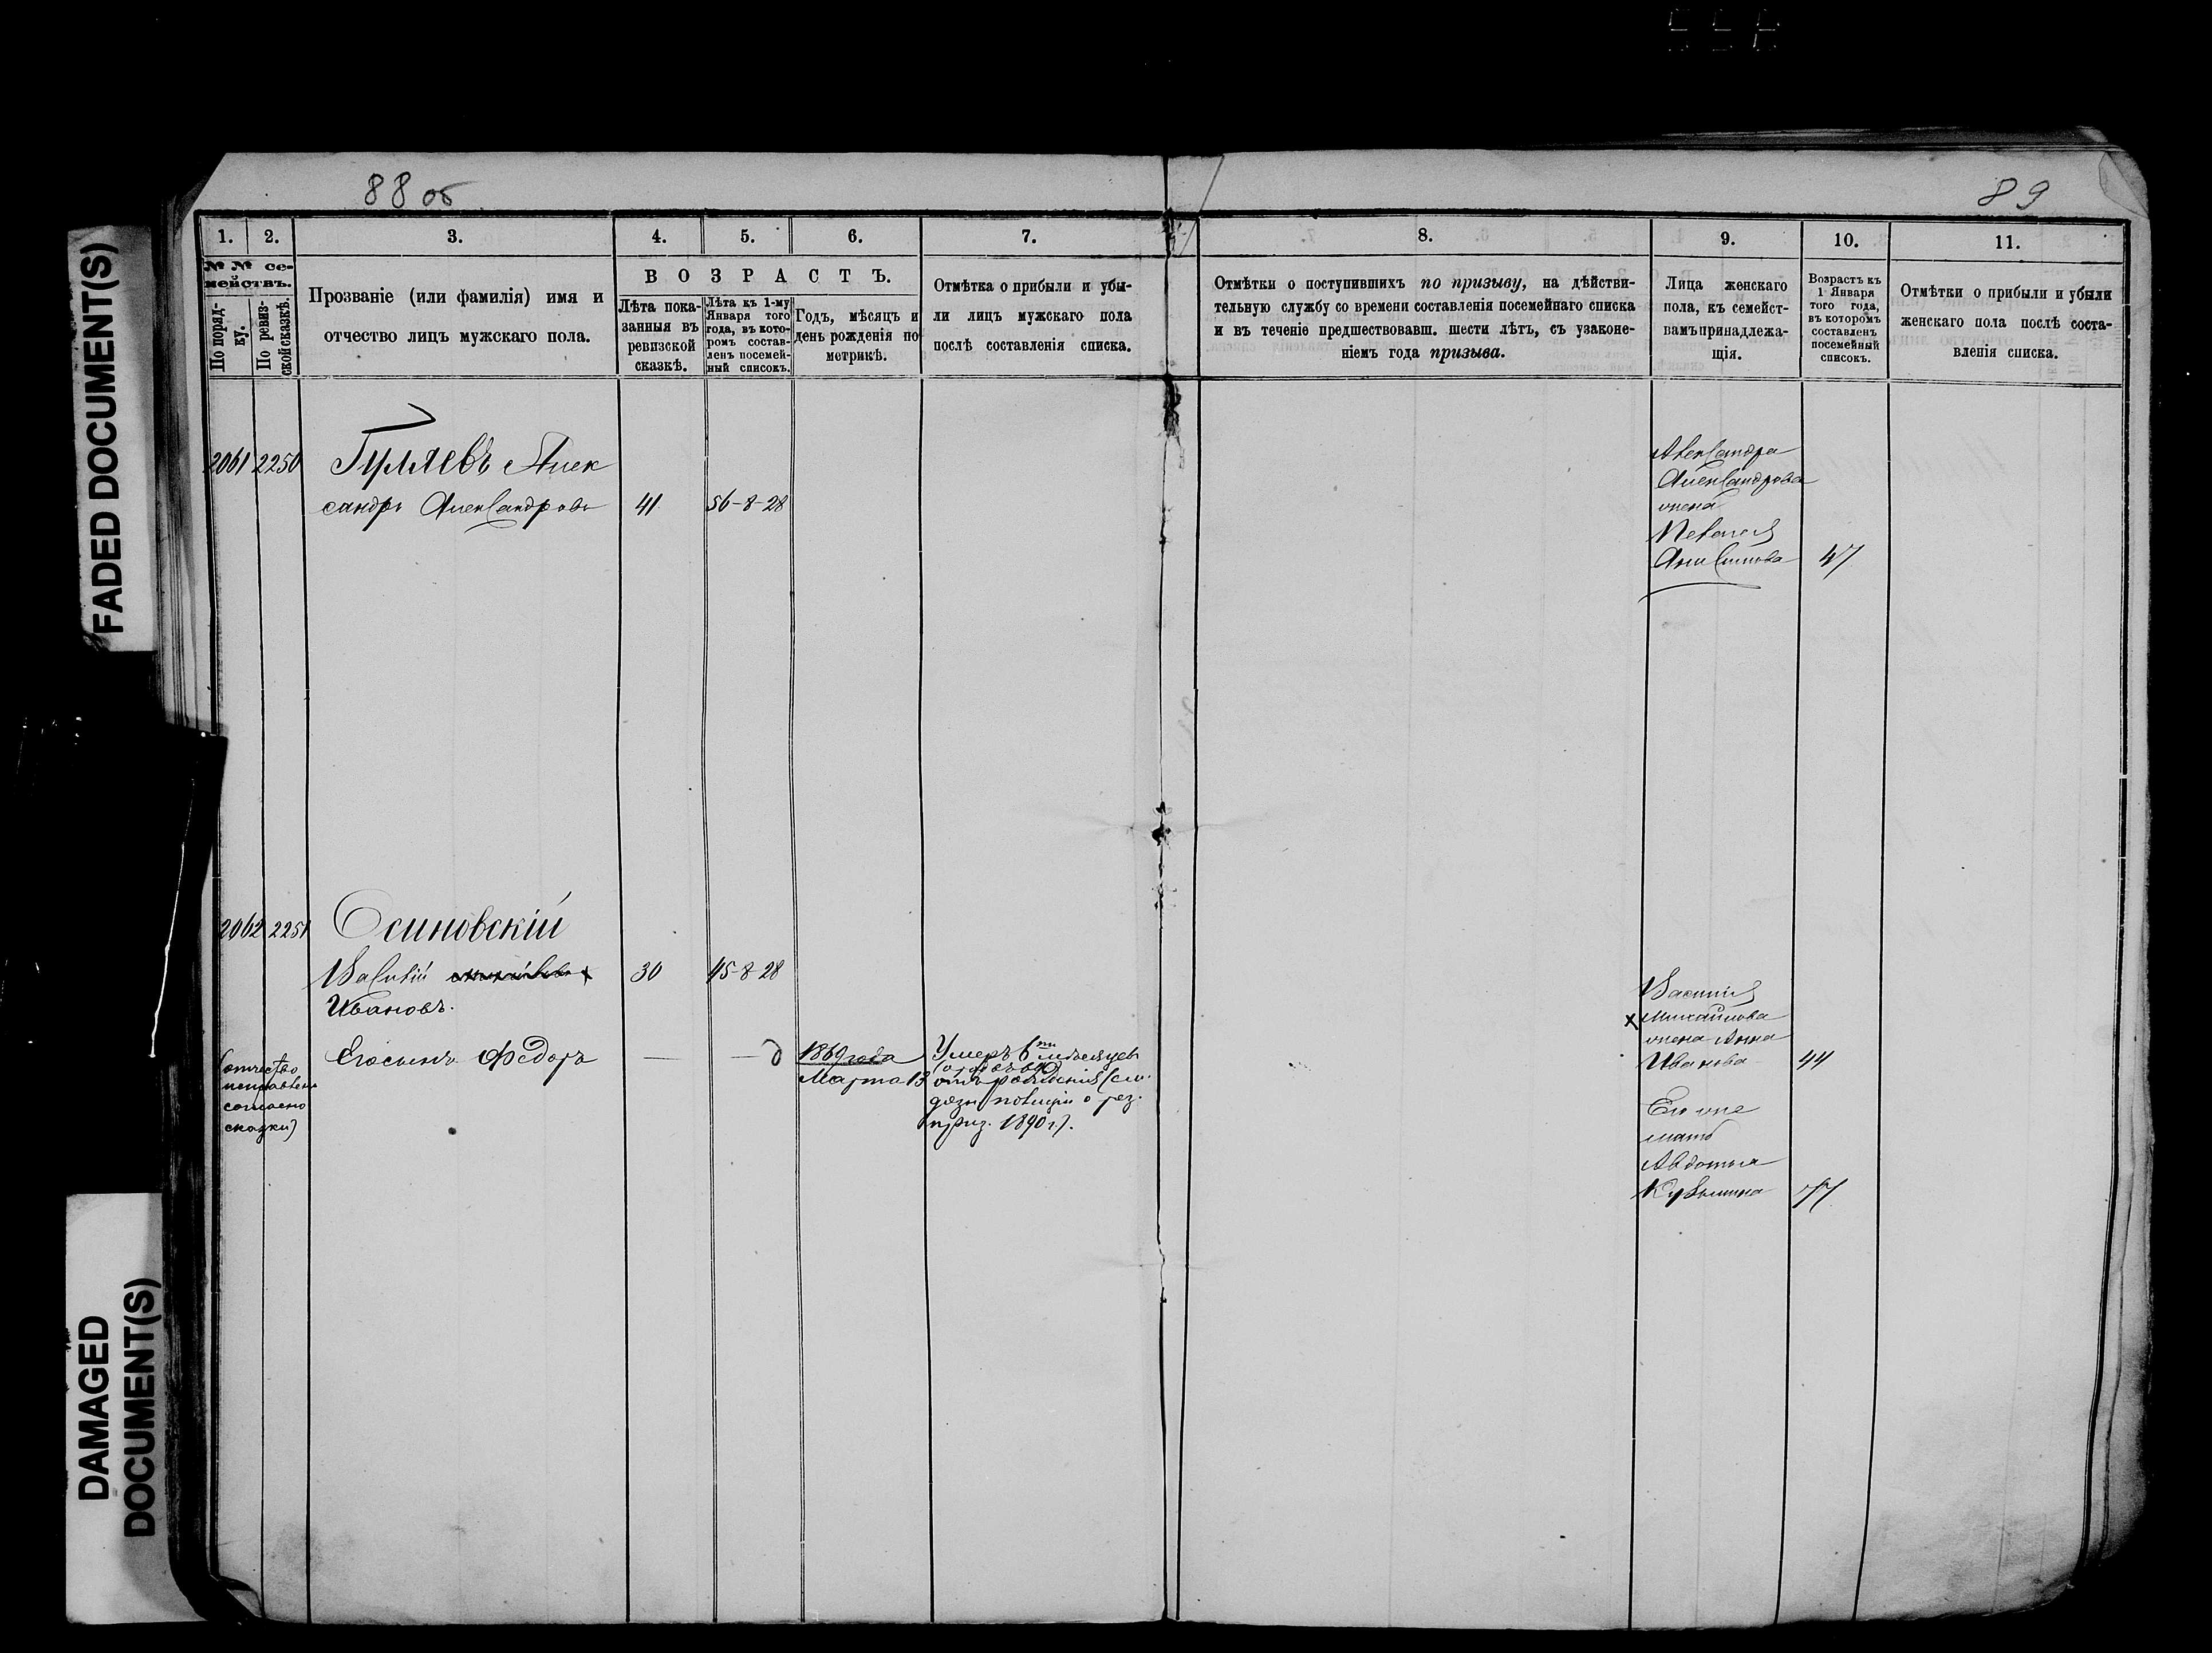 88 об
89
FADED DOCUMENT(S)
DAMAGED
DOCUMENT(S)
1. 2. 3. 4. 5. 6. 7. 8. 9. 10. 11.
№ № се-
мействъ.
По поряд-
ку.
По ревиз-
ской сказкѣ.
Прозваніе (или фамилія) имя и
отчество лицъ мужскаго пола.
ВОЗРАСТЪ.
Лѣта пока-
занныя въ
ревизской
сказкѣ.
Лѣта къ 1-му
Января того
года, въ кото-
ромъ состав-
ленъ посемей-
ный списокъ.
Годъ, мѣсяцъ и
день рожденія по
метрикѣ.
Отмѣтка о прибыли и убы-
ли лицъ мужскаго пола
послѣ составленія списка.
Отмѣтки о поступившихъ по призыву, на дѣйстви-
тельную службу со времени составленія посемейнаго списка
и въ теченіе предшествовавш. шести лѣтъ, съ узаконе-
ніемъ года призыва.
Лица женскаго
пола, къ семейст-
вамъ принадлежа-
щія.
Возрастъ къ
1 Января
того года,
въ которомъ
составленъ
посемейный
списокъ.
Отмѣтки о прибыли и убыли
женскаго пола послѣ соста-
вленія списка.
2061 2250 Гуляевъ Алек
сандръ Александровъ 41 56-8-28
Александра
Александрова
жена
Анисимова 47
2062 2251 Осиновскій
Василій 30 45-8-28
Ивановъ.
Его сынъ Федоръ — — д 1869 года
Марта 13
Умеръ 6ти мѣсяцевъ
отъ рожденія
полиціи о рез.
приз. 1890 г).
(отчество
исправлено
согласно
сказки)
Василія
х Михайлова
жена Анна
Иванова 44
Его же
мать
Авдотья
Кузьмина 77